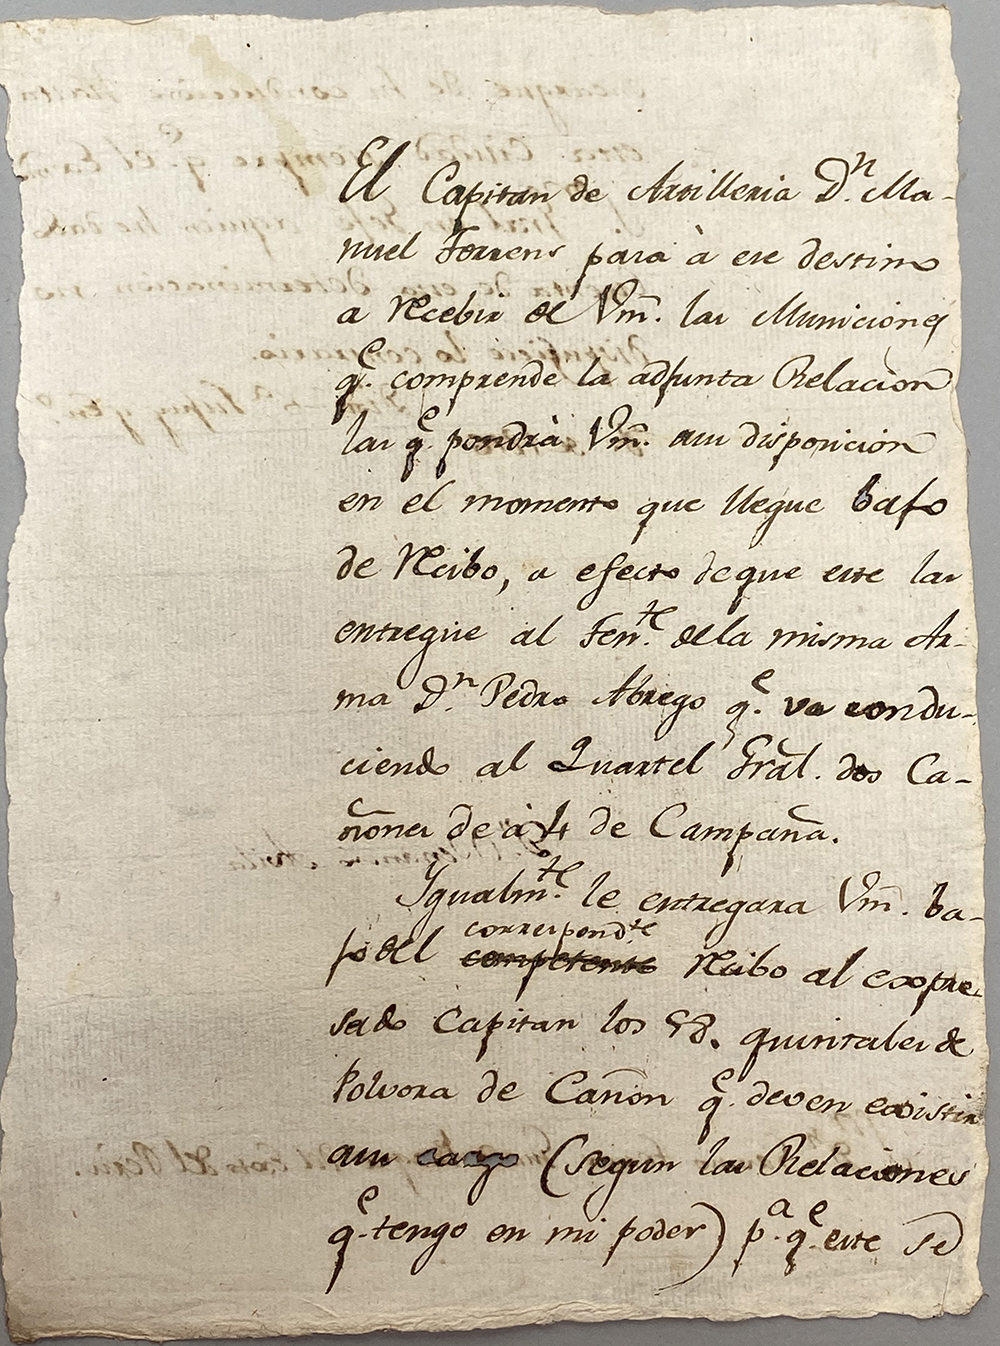 El Capitan de Artilleria Dn. Ma-
nuel Torrens pasa à ese destino
a recebir de Vm. las Municiones
qe. comprende la adjunta Relacion
las qe. pondrà Vm. asu disposicion
en el momento que llegue bajo
de recibo, a efecto deque este las
entregue al Tente. dela misma Ar-
ma Dn. Pedro Abrego qe. va condu-
ciendo al Quartel Gral. dos Ca-
ñones de à 4 de Campaña.
Igualmte. le entregara Vm. ba-
jo del correspondte competente recibo al expre-
sado Capitan los quintales de
Polvora de Cañon qe. deven existir
asu cargo (segun las Relaciones
qe. tengo en mi poder) pa. qe. este se